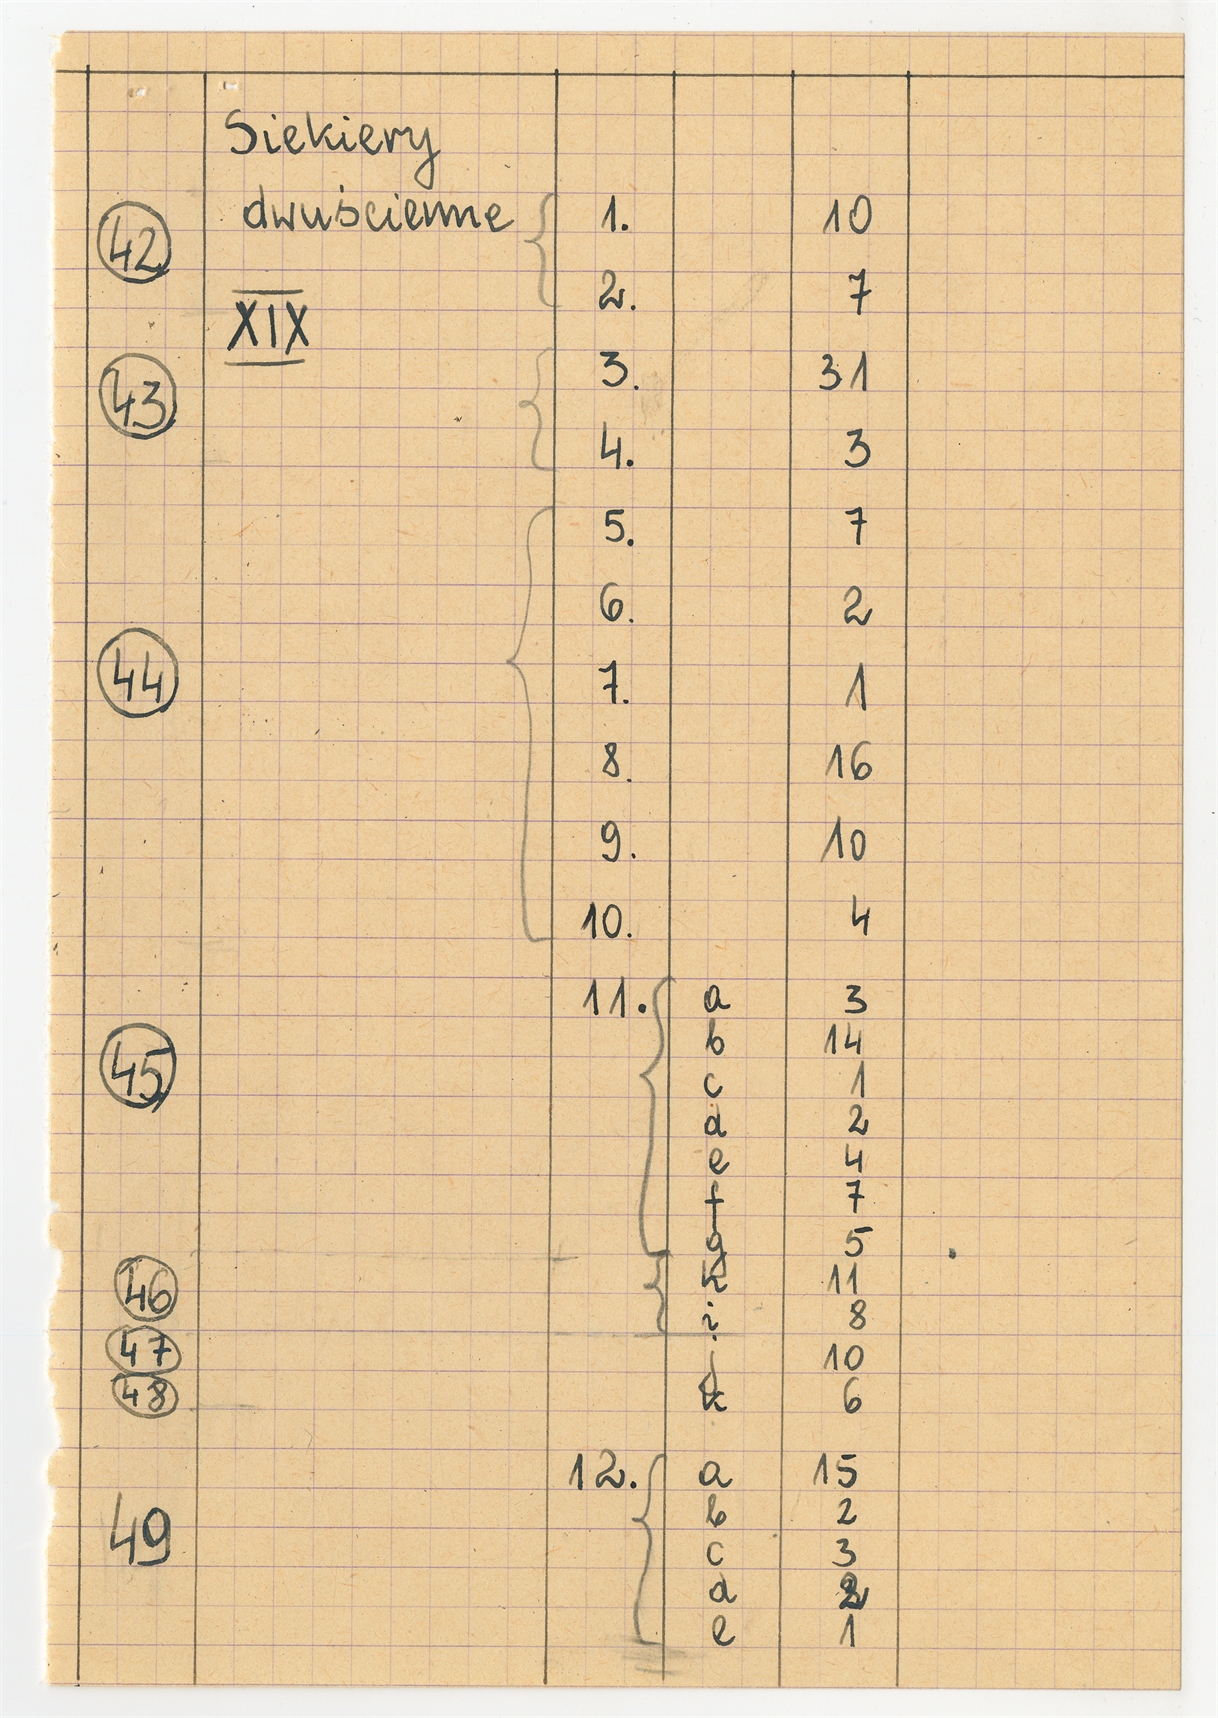 Siekiery
42 dwuścienne 1. 10
2. 7
XIX
43 3. 31
4. 3
5. 7
6. 2
44 7. 1
8. 16
9. 10
10. 4
11. a 3
b 14
45 c 1
d 2
e 4
f 7
g 5
46 h 11
i 8
47 j 10
48 k 6
12. a 15
b 2
49 c 3
d 2
e 1